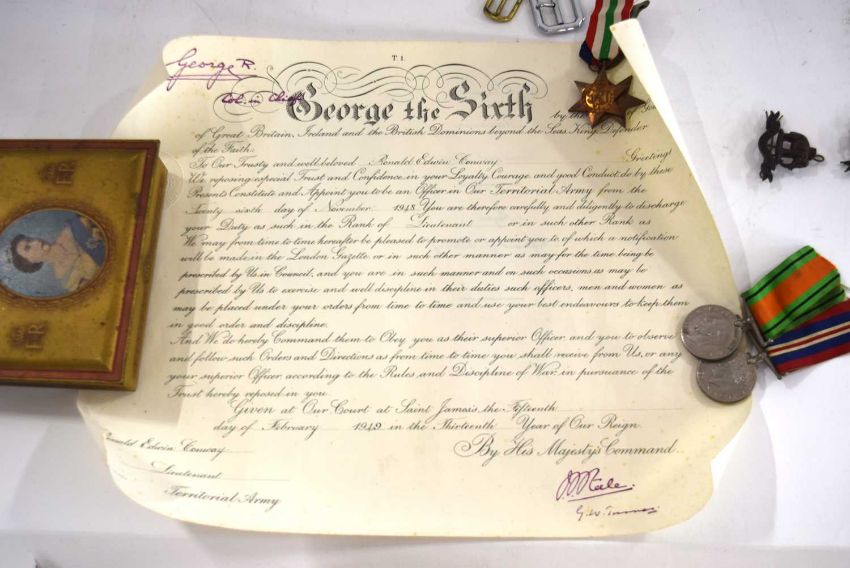 T.1.
George R.
Col. in Chief
George the Sixth
by the Go
of Great Britain, Ireland and the British Dominions beyond the Seas King, Defender
of the Faith.
To Our Trusty and well beloved Ronald Edwin Conway Greeting!
We reposing especial Trust and Confidence in your Loyalty Courage, and good Conduct do by these
Presents Constitute and Appoint you to be an Officer in Our Territorial Army from the
Twenty sixth day of November 1948 You are therefore carefully and diligently to discharge
your Duty as such in the Rank of Lieutenant or in such other Rank as
We may from time to time hereafter be pleased to promote or appoint you to of which a notification
will be made in the London Gazette or in such other manner as may for the time being be
prescribed by Us in Council, and you are in such manner and on such occasions as may be
prescribed by Us to exercise and well discipline in their duties such officers, men and women as
may be placed under your orders from time to time and use your best endeavours to keep them
in good order and discipline.
And We do hereby Command them to Obey you as their superior Officer and you to observe
and follow such Orders and Directions as from time to time you shall receive from Us, or any
your superior Officer according to the Rules and Discipline of War in pursuance of the
Trust hereby reposed in you
Given at Our Court at Saint James's the Fifteenth
day of February 1949 in the Thirteenth Year of Our Reign
By His Majesty's Command
Ronald Edwin Conway
Lieutenant
Territorial Army